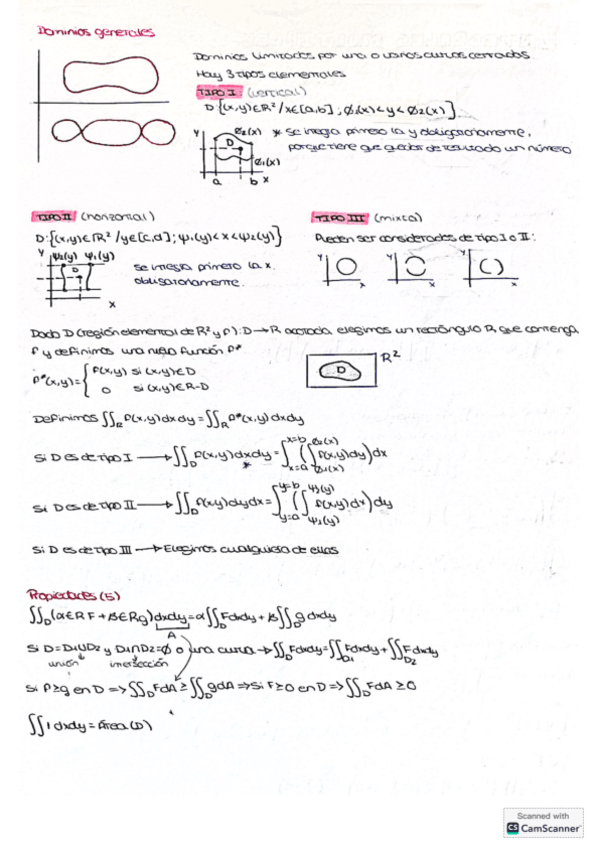 Dominios generales
Dominios limitados por una o varias curvas cerradas.
Hay 3 tipos elementales
TIPO I (vertical)
D:{(x,y)∈R² / x∈[a,b] ; ø₁(x)<y<ø₂(x)}
y ø₂(x) D ø₁(x) a b x
* se integra primero la y obligatoriamente,
porque tiene que quedar de resultado un número
TIPO II (horizontal)
D:{(x,y)∈R² / y∈[c,d] ; ψ₁(y)<x<ψ₂(y)}
y ψ₂(y) ψ₁(y) D x
se integra primero la x.
obligatoriamente.
TIPO III (mixta)
Pueden ser considerados de tipo I o II:
y x y x y x
Dado D (región elemental de R² y f): D→R acotada, elegimos un rectángulo R, que contenga
f y definimos una nueva función f*
f*(x,y)={ f(x,y) si (x,y)∈D
0 si (x,y)∈R-D
D R²
Definimos ∬_R f(x,y)dxdy=∬_R f*(x,y)dxdy
Si D es de tipo I ⟶ ∬_D f(x,y)dxdy = ∫_{x=a}^{x=b} (∫_{ø₁(x)}^{ø₂(x)} f(x,y)dy) dx
*
Si D es de tipo II ⟶ ∬_D f(x,y)dydx = ∫_{y=a}^{y=b} (∫_{ψ₁(y)}^{ψ₂(y)} f(x,y)dx) dy
Si D es de tipo III ⟶ Elegimos cualquiera de ellas
Propiedades (5)
∬_D (α∈R F + β∈R g)dxdy = α∬_D Fdxdy + β∬_D g dxdy
A
Si D=D₁∪D₂ y D₁∩D₂=ø o una curva → ∬_D Fdxdy = ∬_{D1} Fdxdy + ∬_{D2} Fdxdy
unión intersección
Si f≥g en D ⟹ ∬_D FdA ≥ ∬_D gdA ⟹ Si F≥0 en D ⟹ ∬_D FdA ≥ 0
∬ 1 dxdy = Área (D)
Scanned with
CS CamScanner